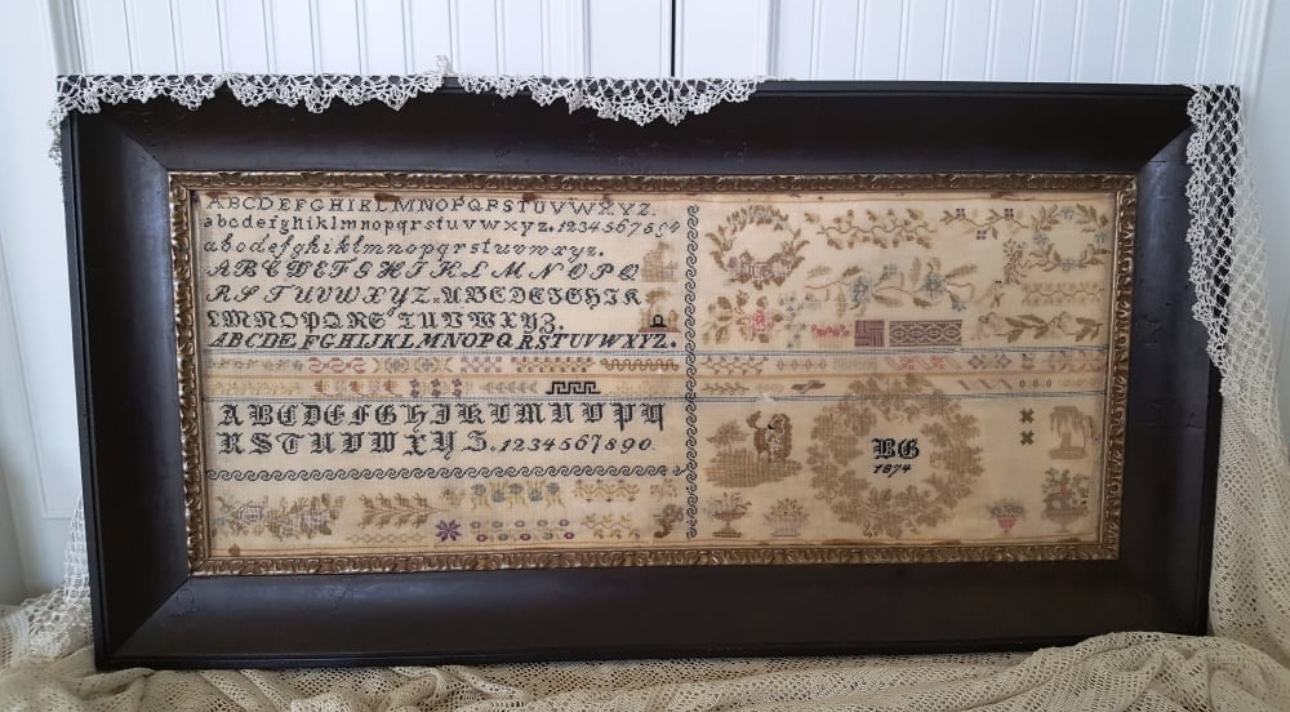 ABCDEFGHIKLMNOPQRSTUVWXYZ.
abcdefghiklmnopqrstuvwxyz.1234567890
abcdefghiklmnopqrstuvwxyz.
ABCDEFGHIKLMNOPQ
RSTUVWXYZ.ABCDEFGHIK
LMNOPQRSTUVWXYZ.
ABCDEFGHIJKLMNOPQRSTUVWXYZ.
ABCDEFGHIKLMNOPQ
RSTUVWXYZ.1234567890.
BG
1874